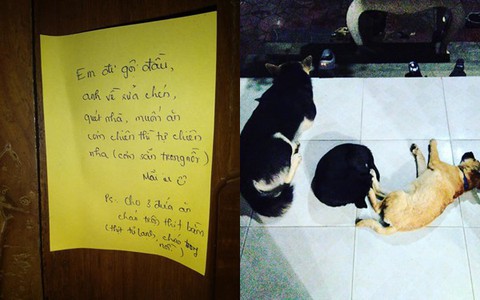 Em đi gội đầu,
anh về rửa chén,
quét nhà, muốn ăn
cơm chiên thì tự chiên
nha (cơm sẵn trong nồi)
Mãi iu
Ps: Cho 3 đứa ăn
cháo trộn thịt bằm
(thịt tủ lạnh, cháo trong
nồi)